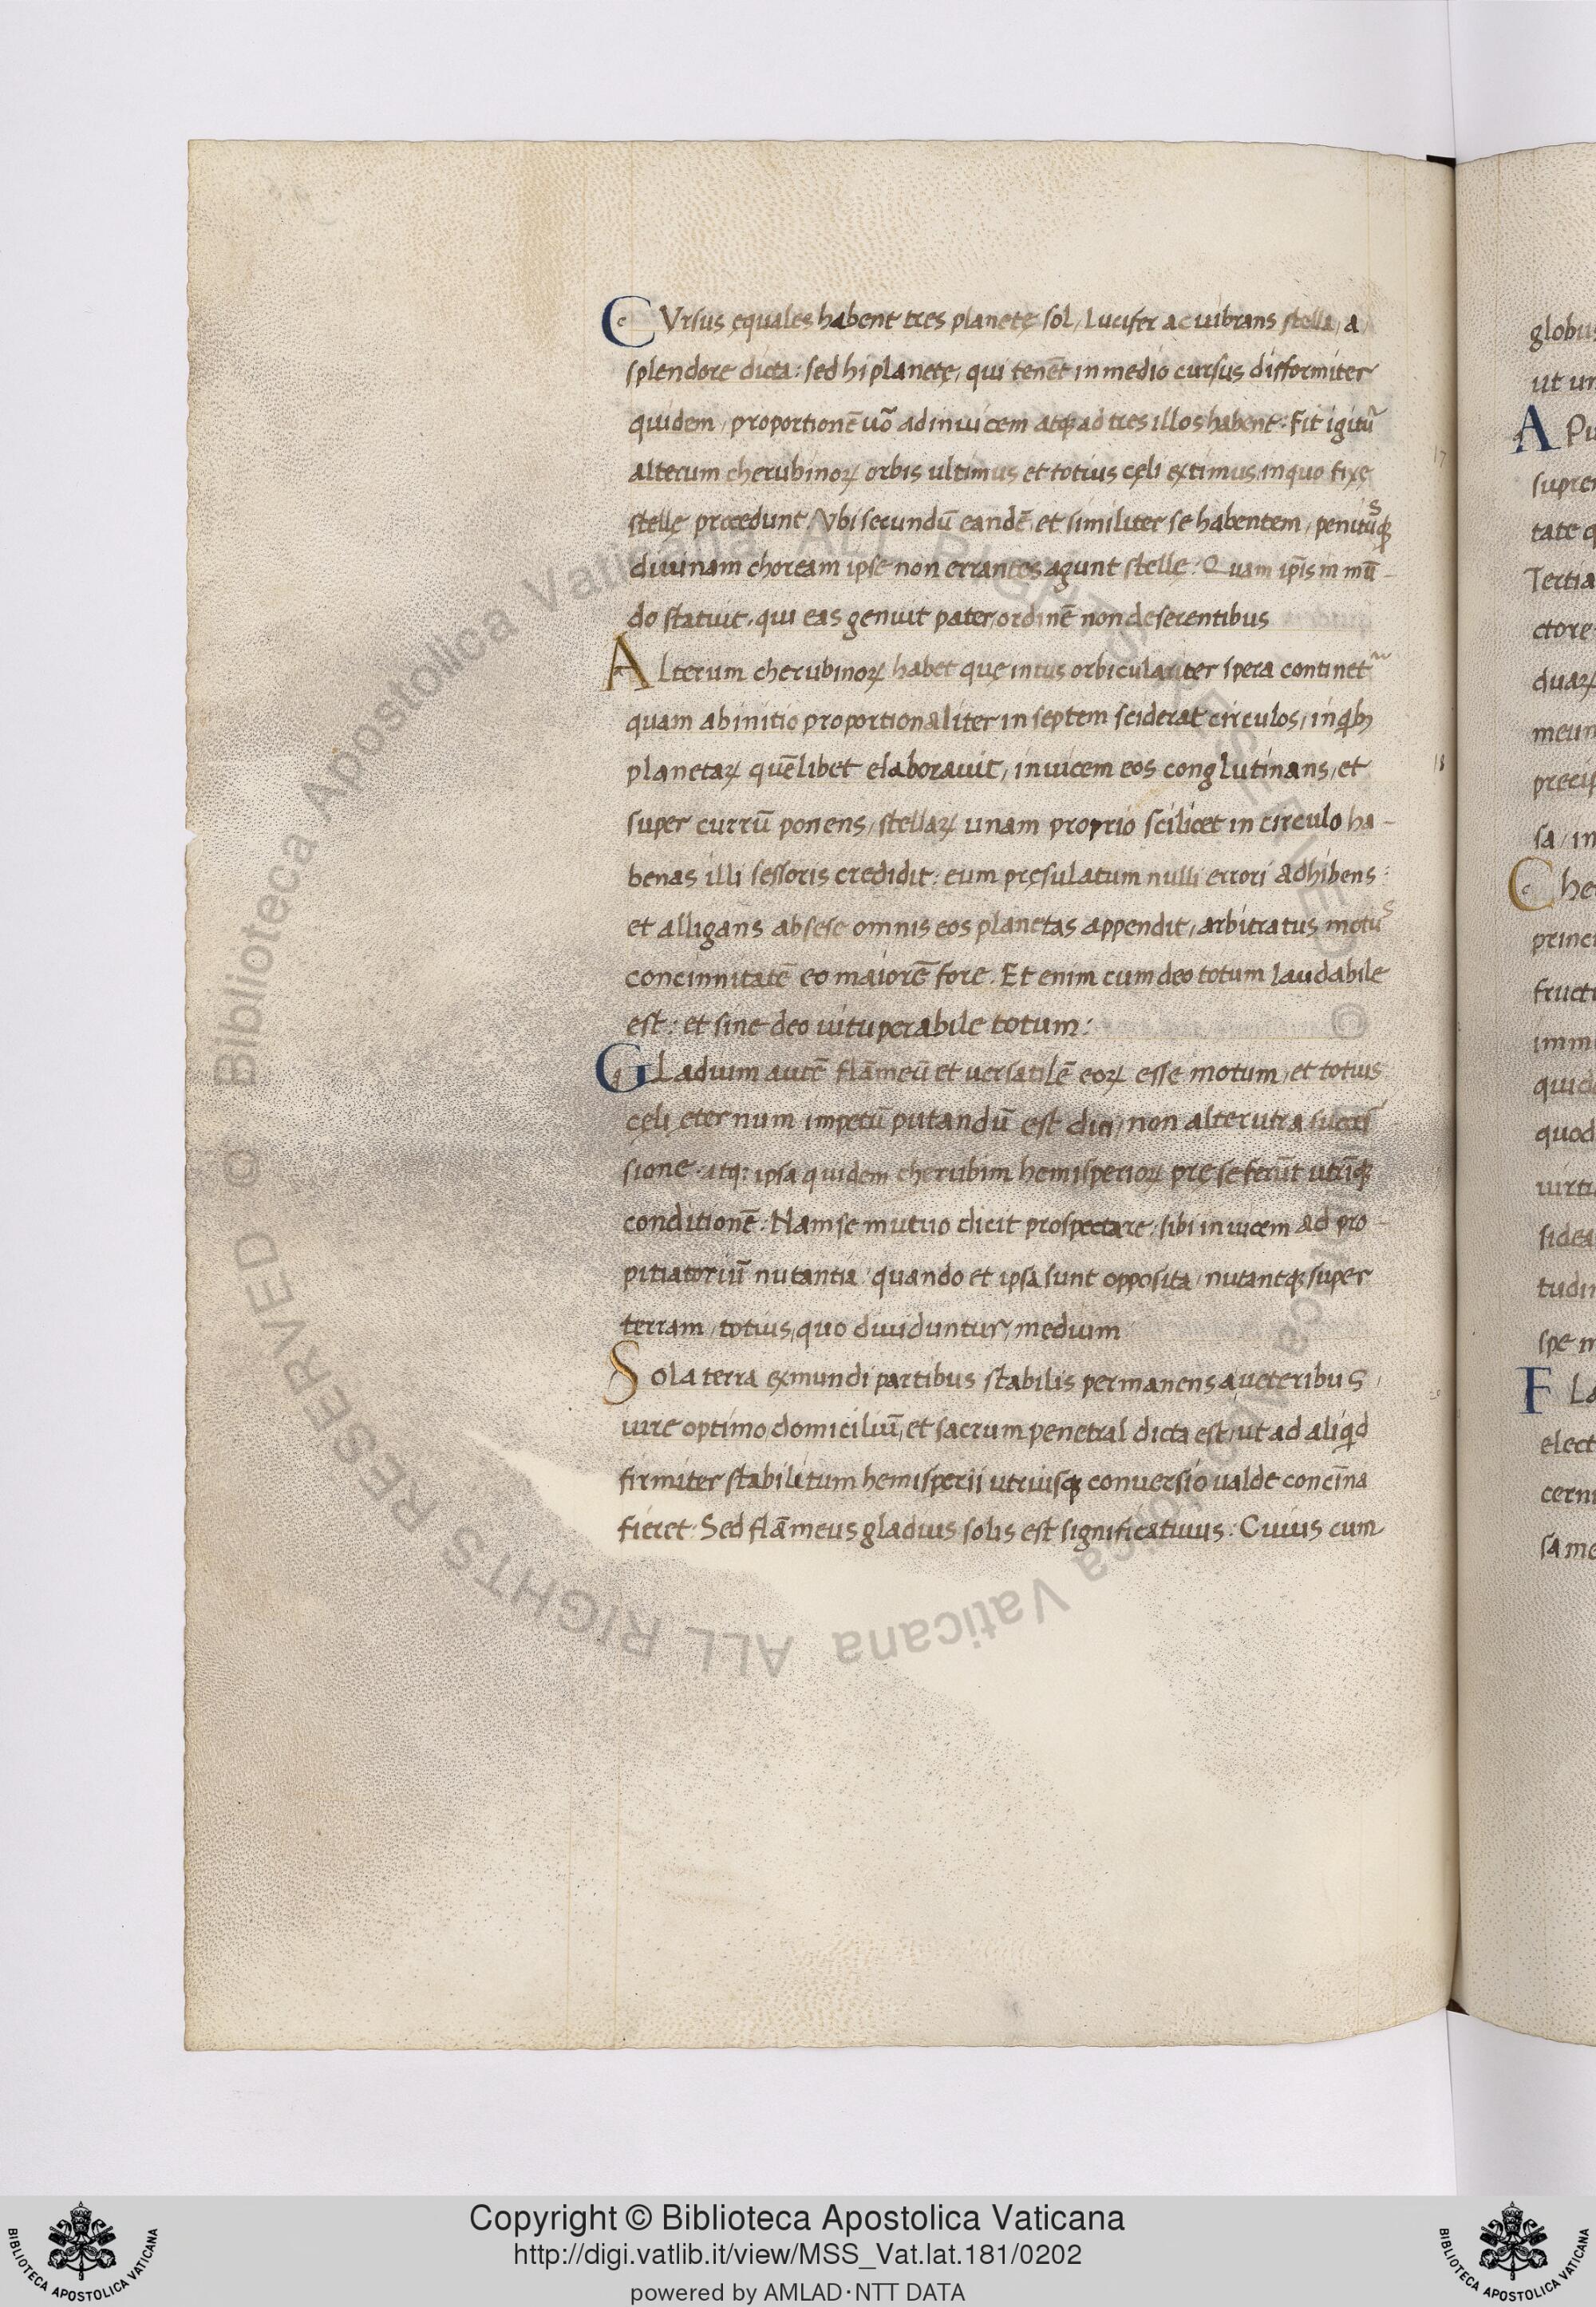 CVrsus ęquales habent tres planetę sol, Lucifer ac uibrans stella, a
splendore dicta: sed hi planetę, qui tenēt in medio cursus difformiter
quidem, proportionē uō ad inuicem atqꝫ ad tres illos habent: Fit igitur̃
alterum cherubinoꝝ orbis ultimus et totius cęli extimus, in quo fixę
stellę procedunt. Vbi secundū eandē et similiter se habentem, penitusqꝫ
diuinam choream ipse non errantes agunt stelle: Quam ip̄is in mū-
do statuit, qui eas genuit pater, ordinē non deserentibus
Alterum cherubinoꝝ habet quę intus orbiculariter spera continet᷑
quam ab initio proportionaliter in septem sciderat circulos, in qbꝫ
planetaꝝ quēlibet elaborauit, inuicem eos conglutinans, et
super currū ponens, stellaꝝ unam proprio scilicet in circulo ha-
benas illi sessoris credidit: eum pręsulatum nulli errori adhibens:
et alligans ab sese omnis eos planetas appendit, arbitratus motus
concinnitatē eo maiorē fore. Et enim cum deo totum laudabile
est: et sine deo uituperabile totum:
GLadium autē flāmeū et uersatilē eoꝝ esse motum, et totius
cęli ęternum impetū putandū est dici, non alterutra succes
sione. atq: ipsa quidem cherubim hemisperioꝝ prę se ferūt utriqꝫ
conditionē: Nam se mutuo dicit prospectare: sibi inuicem ad pro-
pitiatoriū nutantia: quando et ipsa sunt opposita, nutantqꝫ super
terram, totius, quo diuiduntur, medium
Sola terra ex mundi partibus stabilis permanens a ueteribus,
iure optimo, domiciliū, et sacrum penetral dicta est, ut ad aliqd
firmiter stabilitum hemisperii utriusqꝫ conuersio ualde concīna
fieret: Sed flāmeus gladius solis est significatiuus: Cuius cum
globus
ut un
A Pu
suprem
tate q
Tertia
ctore
duaꝝ
meum
precip
sa, in
Che
princi
fructi
immi
quid
quod
uirtu
sidea
tudin
spe m
F La
elect
cerni
sa me
© Biblioteca Apostolica Vaticana ALL RIGHTS RESERVED
© Biblioteca Apostolica Vaticana ALL RIGHTS RESERVED
Copyright © Biblioteca Apostolica Vaticana
http://digi.vatlib.it/view/MSS_Vat.lat.181/0202
powered by AMLAD·NTT DATA
BIBLIOTECA APOSTOLICA VATICANA
BIBLIOTECA APOSTOLICA VATICANA